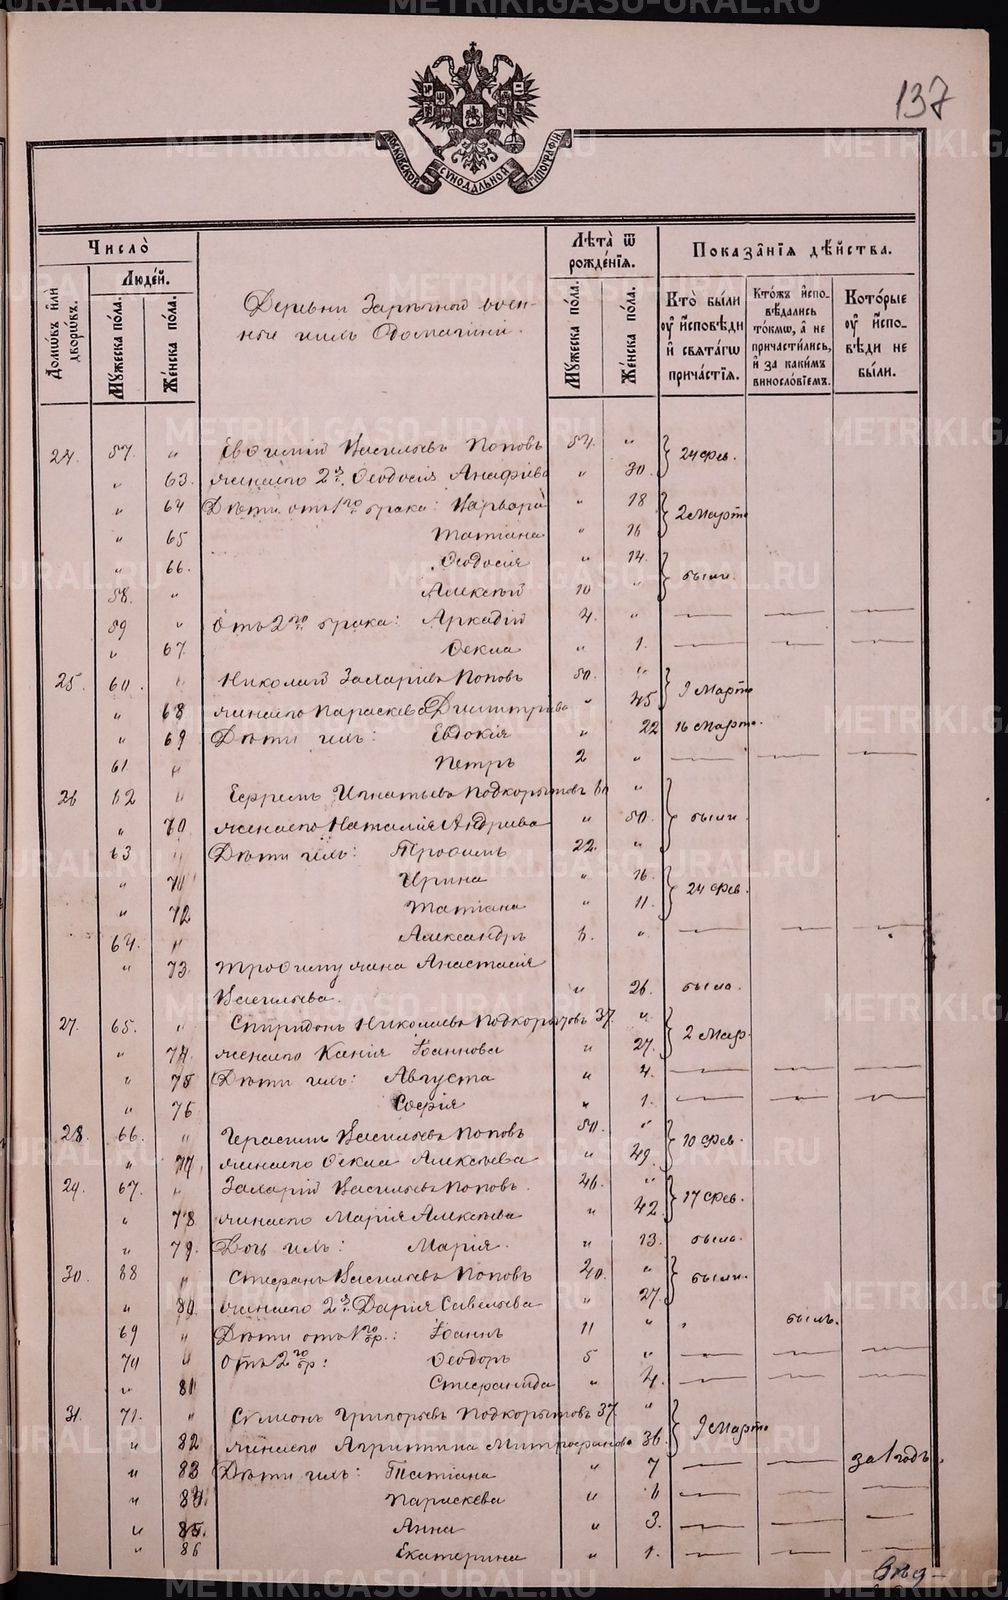 137
МОСКОВСКОЙ СУНОДАЛЬНОЙ ТИПОГРАФІИ
Число̀
Людéй.
Домѡ́въ и҆лѝ дворѡ́въ.
Мꙋ́жеска по́ла.
Же́нска по́ла.
Деревни Зарѣчной воен-
ные
Лѣ́та ѿ рожде́нїѧ.
Мꙋ́жеска по́ла.
Же́нска по́ла.
Показа̑нїѧ дѣ́йства.
Кто̀ бы́ли ᲂу҆ и҆́сповѣди и҆ свѧта́гѡ прича́стїѧ.
Кто́жъ и҆спо-вѣ́дались то́кмѡ, а҆ не причасти́лись, и҆ за каки́мъ винослові́емъ.
Кото́рые ᲂу҆ и҆́спо-вѣди не бы́ли.
24. 57. " Евѳимій Васильевъ Поповъ 54. " 24 Фев.
" 63. жена его 2 б. Ѳеодосія " 30.
" 64 Дѣти отъ 1го брака: Варвара " 18 2 Марта
" 65 Татіана " 16
" 66. Ѳеодосія " 14. были.
58. " Алексѣй 10 "
59 " Отъ 2го брака: Аркадій 4. " — — —
" 67. Ѳекла " 1. — — —
25. 60. " Николай Захаріевъ Поповъ 50. " 9 Марта
" 68 жена его Параскева Димитріева " 45
" 69 Дѣти ихъ: Евдокія " 22 16 Марта.
61. " Петръ 2 " — — —
26 62 " Ефремъ Игнатьевъ Подкорытовъ 60 " были.
" 70 жена его Наталія Андреева " 50.
63 " Дѣти ихъ: Трофимъ 22. "
" 71 Ирина " 16. 24 Фев.
" 72 Татіана " 11.
64. " Александръ 6. " — — —
" 73. Трофиму жена Анастасія
Васильева. " 26. была.
27. 65. " Спиридонъ Николаевъ Подкорытовъ 37 " 2 Мар.
" 74. жена его Ксенія Іоаннова " 27.
" 75 Дѣти ихъ: Августа " 4. — — —
" 76 Софія " 1. — — —
28. 66. " Герасимъ Васильевъ Поповъ 50. " 10 Фев.
" 77. жена его Ѳекла Алексѣева " 49.
29. 67. " Захарій Васильевъ Поповъ. 46. " 17 Фев.
" 78. жена его Марія Алексѣева " 42.
" 79. Дочь ихъ: Марія. " 13. была.
30. 68 " Стефанъ Васильевъ Поповъ 40. " были.
" 80. жена его 2 б. Дарія Савельева " 27.
69 " Дѣти отъ 1го бр.: Іоаннъ 11 " " былъ.
70 " Отъ 2го бр: Ѳеодоръ 5 " — — —
" 81 Стефанида " 4. — — —
31. 71. " Симеонъ Григорьевъ Подкорытовъ 37 " 9 Марта
" 82 жена его Агриппина Митрофанова 36.
" 83 Дѣти ихъ: Татіана " 7 — — за 1 годъ.
" 84. Параскева " 6 — — —
" 85. Анна " 3. — — —
" 86 Екатерина " 1. — — —
METRIKI.GASO-URAL.RU